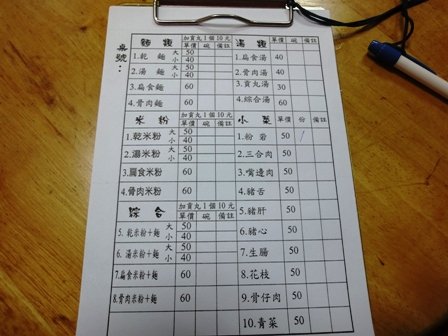 桌號：
麵類 加貢丸1個10元 單價 碗 備註
1.乾麵 大 50 小 40
2.湯麵 大 50 小 40
3.扁食麵 60
4.骨肉麵 60
米粉 加貢丸1個10元 單價 碗 備註
1.乾米粉 大 50 小 40
2.湯米粉 大 50 小 40
3.扁食米粉 60
4.骨肉米粉 60
綜合 加貢丸1個10元 單價 碗 備註
5.乾米粉+麵 大 50 小 40
6.湯米粉+麵 大 50 小 40
7.扁食米粉+麵 60
8.骨肉米粉+麵 60
湯類 單價 碗 備註
1.扁食湯 40
2.骨肉湯 40
3.貢丸湯 30
4.綜合湯 60
小菜 單價 份 備註
1.粉 50 /
2.三合肉 50
3.嘴邊肉 50
4.豬舌 50
5.豬肝 50
6.豬心 50
7.生腸 50
8.花枝 50
9.骨仔肉 50
10.青菜 50